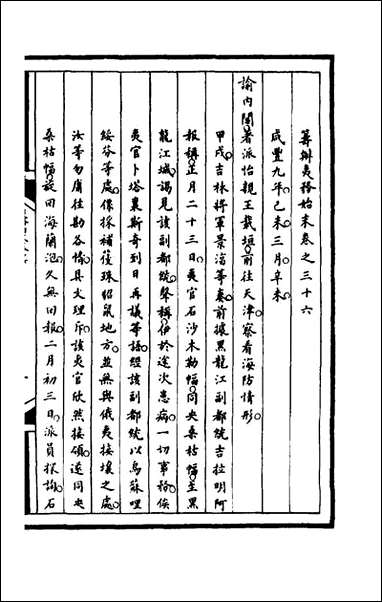 籌辦夷務始末卷之三十六
咸豐九年己未三月辛未
諭內閣著派怡親王載垣前往天津察看海防情形
甲戌吉林將軍景淳等奏前據黑龍江副都統吉拉明阿
報稱正月二十三日夷官石沙木勒幅同夾桑枯幅至黑
龍江城謁見該副都統聲稱伊於途次患病一切事務俟
夷官卜塔裏斯奇到日再議等語經該副都統以烏蘇哩
綏芬等處係採捕葠珠貂鼠地方並無與俄夷接壤之處
汝等勿庸往勘各情具文理斥該夷官欣然接領遂同夾
桑枯幅旋回海蘭泡久無回報二月初三日派員探詢石